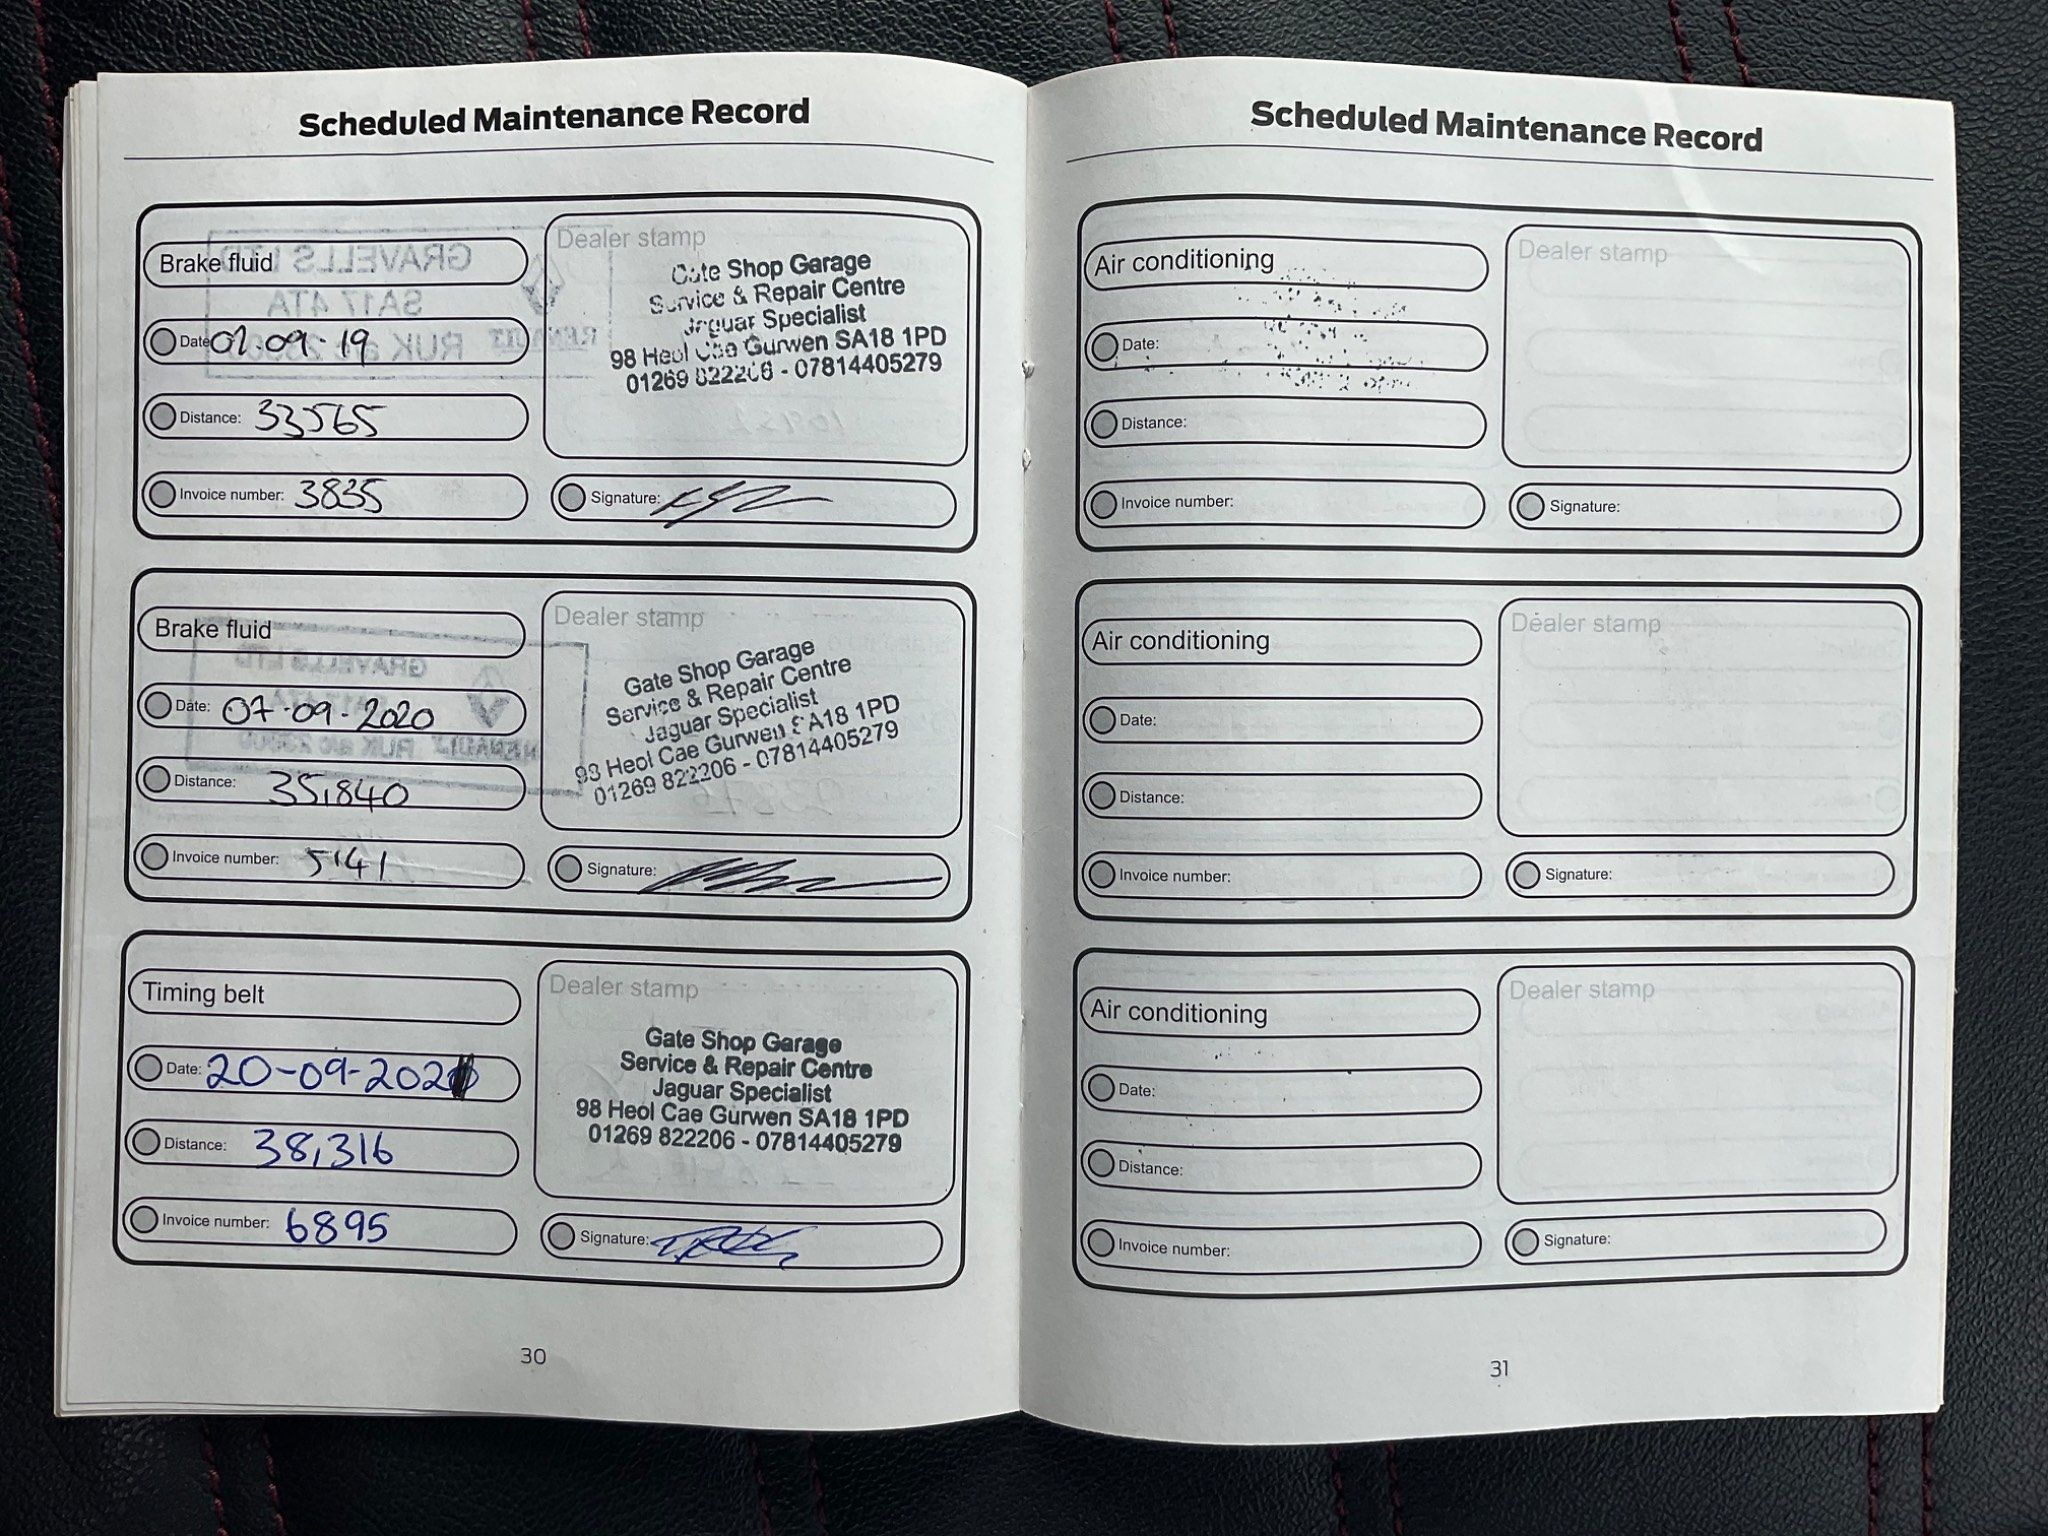 Scheduled Maintenance Record
Brake fluid
Date: 09-19
Distance: 33565
Invoice number: 3835
Dealer stamp
Gate Shop Garage
Service & Repair Centre
Jaguar Specialist
98 Heol Cae Gurwen SA18 1PD
01269 822206 - 07814405279
Signature:
Brake fluid
Date: 07-09-2020
Distance: 35,840
Invoice number: 5141
Dealer stamp
Gate Shop Garage
Service & Repair Centre
Jaguar Specialist
98 Heol Cae Gurwen SA18 1PD
01269 822206 - 07814405279
Signature:
Timing belt
Date: 20-09-202
Distance: 38,316
Invoice number: 6895
Dealer stamp
Gate Shop Garage
Service & Repair Centre
Jaguar Specialist
98 Heol Cae Gurwen SA18 1PD
01269 822206 - 07814405279
Signature:
30
Scheduled Maintenance Record
Air conditioning
Date:
Distance:
Invoice number:
Dealer stamp
Signature:
Air conditioning
Date:
Distance:
Invoice number:
Dealer stamp
Signature:
Air conditioning
Date:
Distance:
Invoice number:
Dealer stamp
Signature:
31